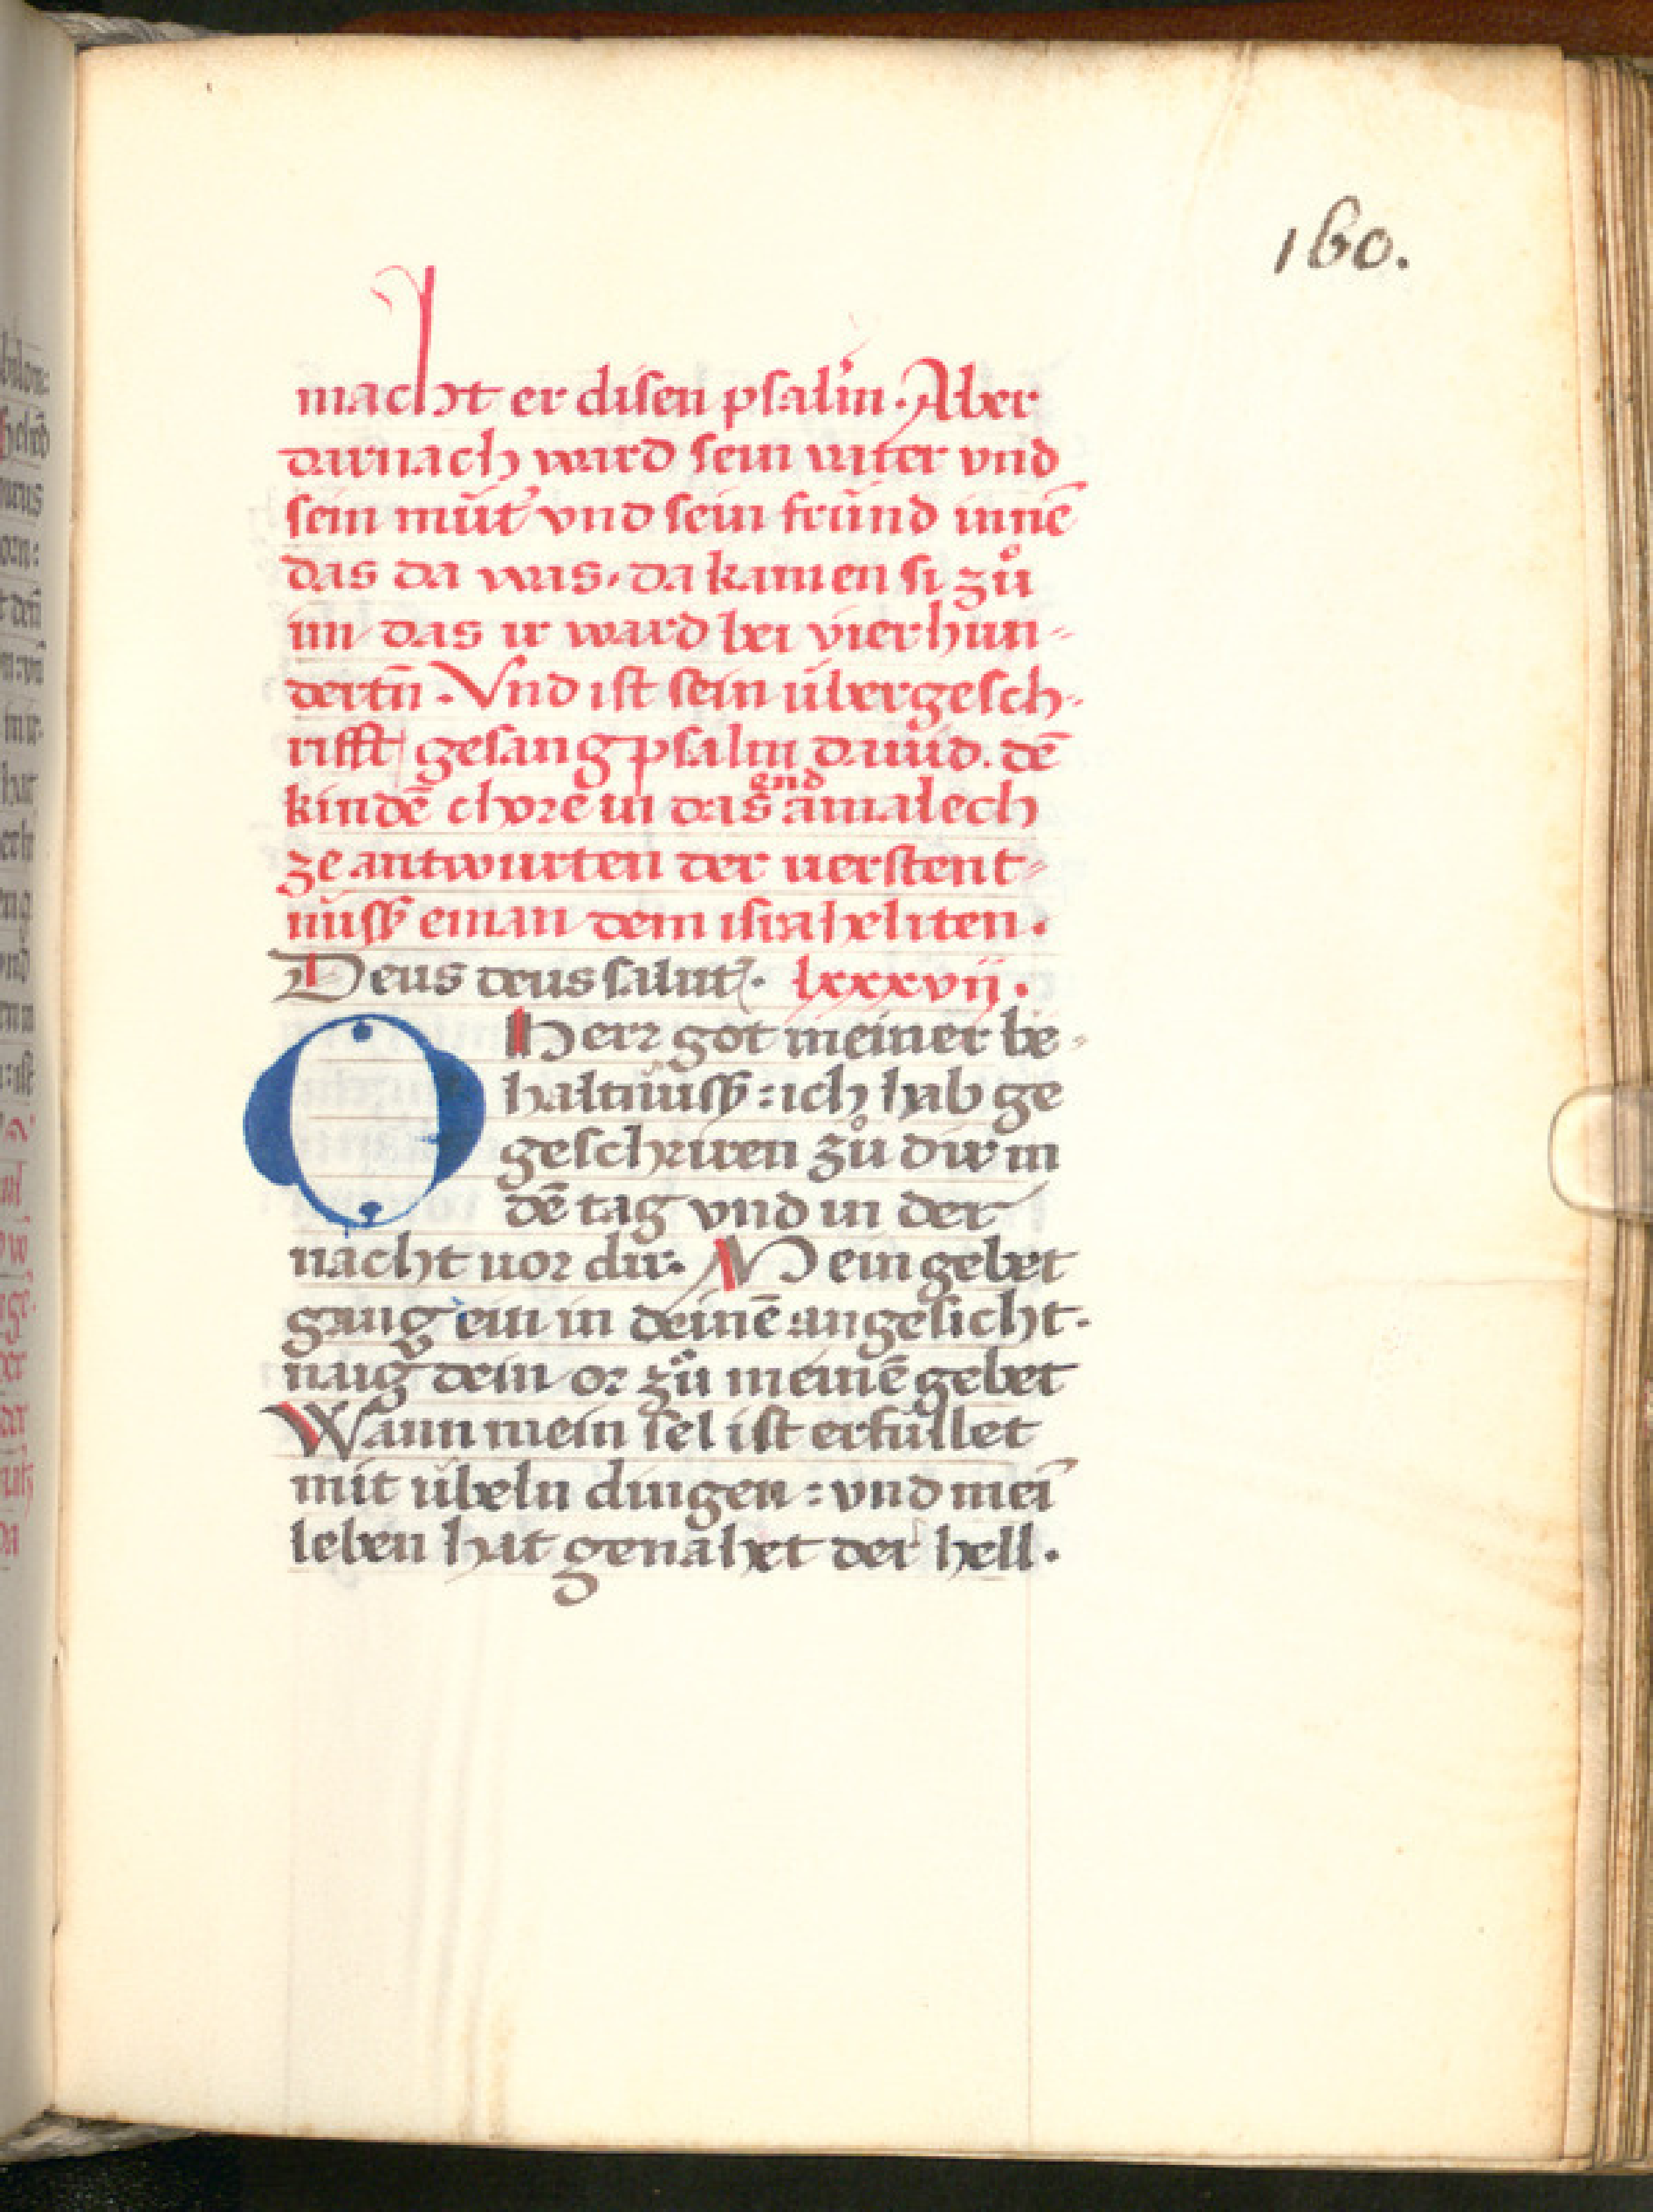 160.
macht er disen psalm̄. Aber
darnach ward sein vater vnd
sein mŭt̕ vnd sein frŭnd innē
das da was. da kamen si zů
im das ir ward bei vierhun-
dertn̄. Vnd ist sein übergesch-
rifft gesang psalm dauid. dē
kindē chore in das end amalech
ze antwurten der uerstent-
nüss eman dem isrаheliten.
Deus deus salut. lxxxvij.
O herr got meiner be-
haltnüss: ich hab ge
geschriren zů dir in
dē tag vnd in der
nacht uor dir. Mein gebet
gang ein in deinē angesicht.
naig dein or zů meinē gebet
Wann mein sel ist erfüllet
mit übeln dingen: vnd mei̅
leben hat genahet der hell.